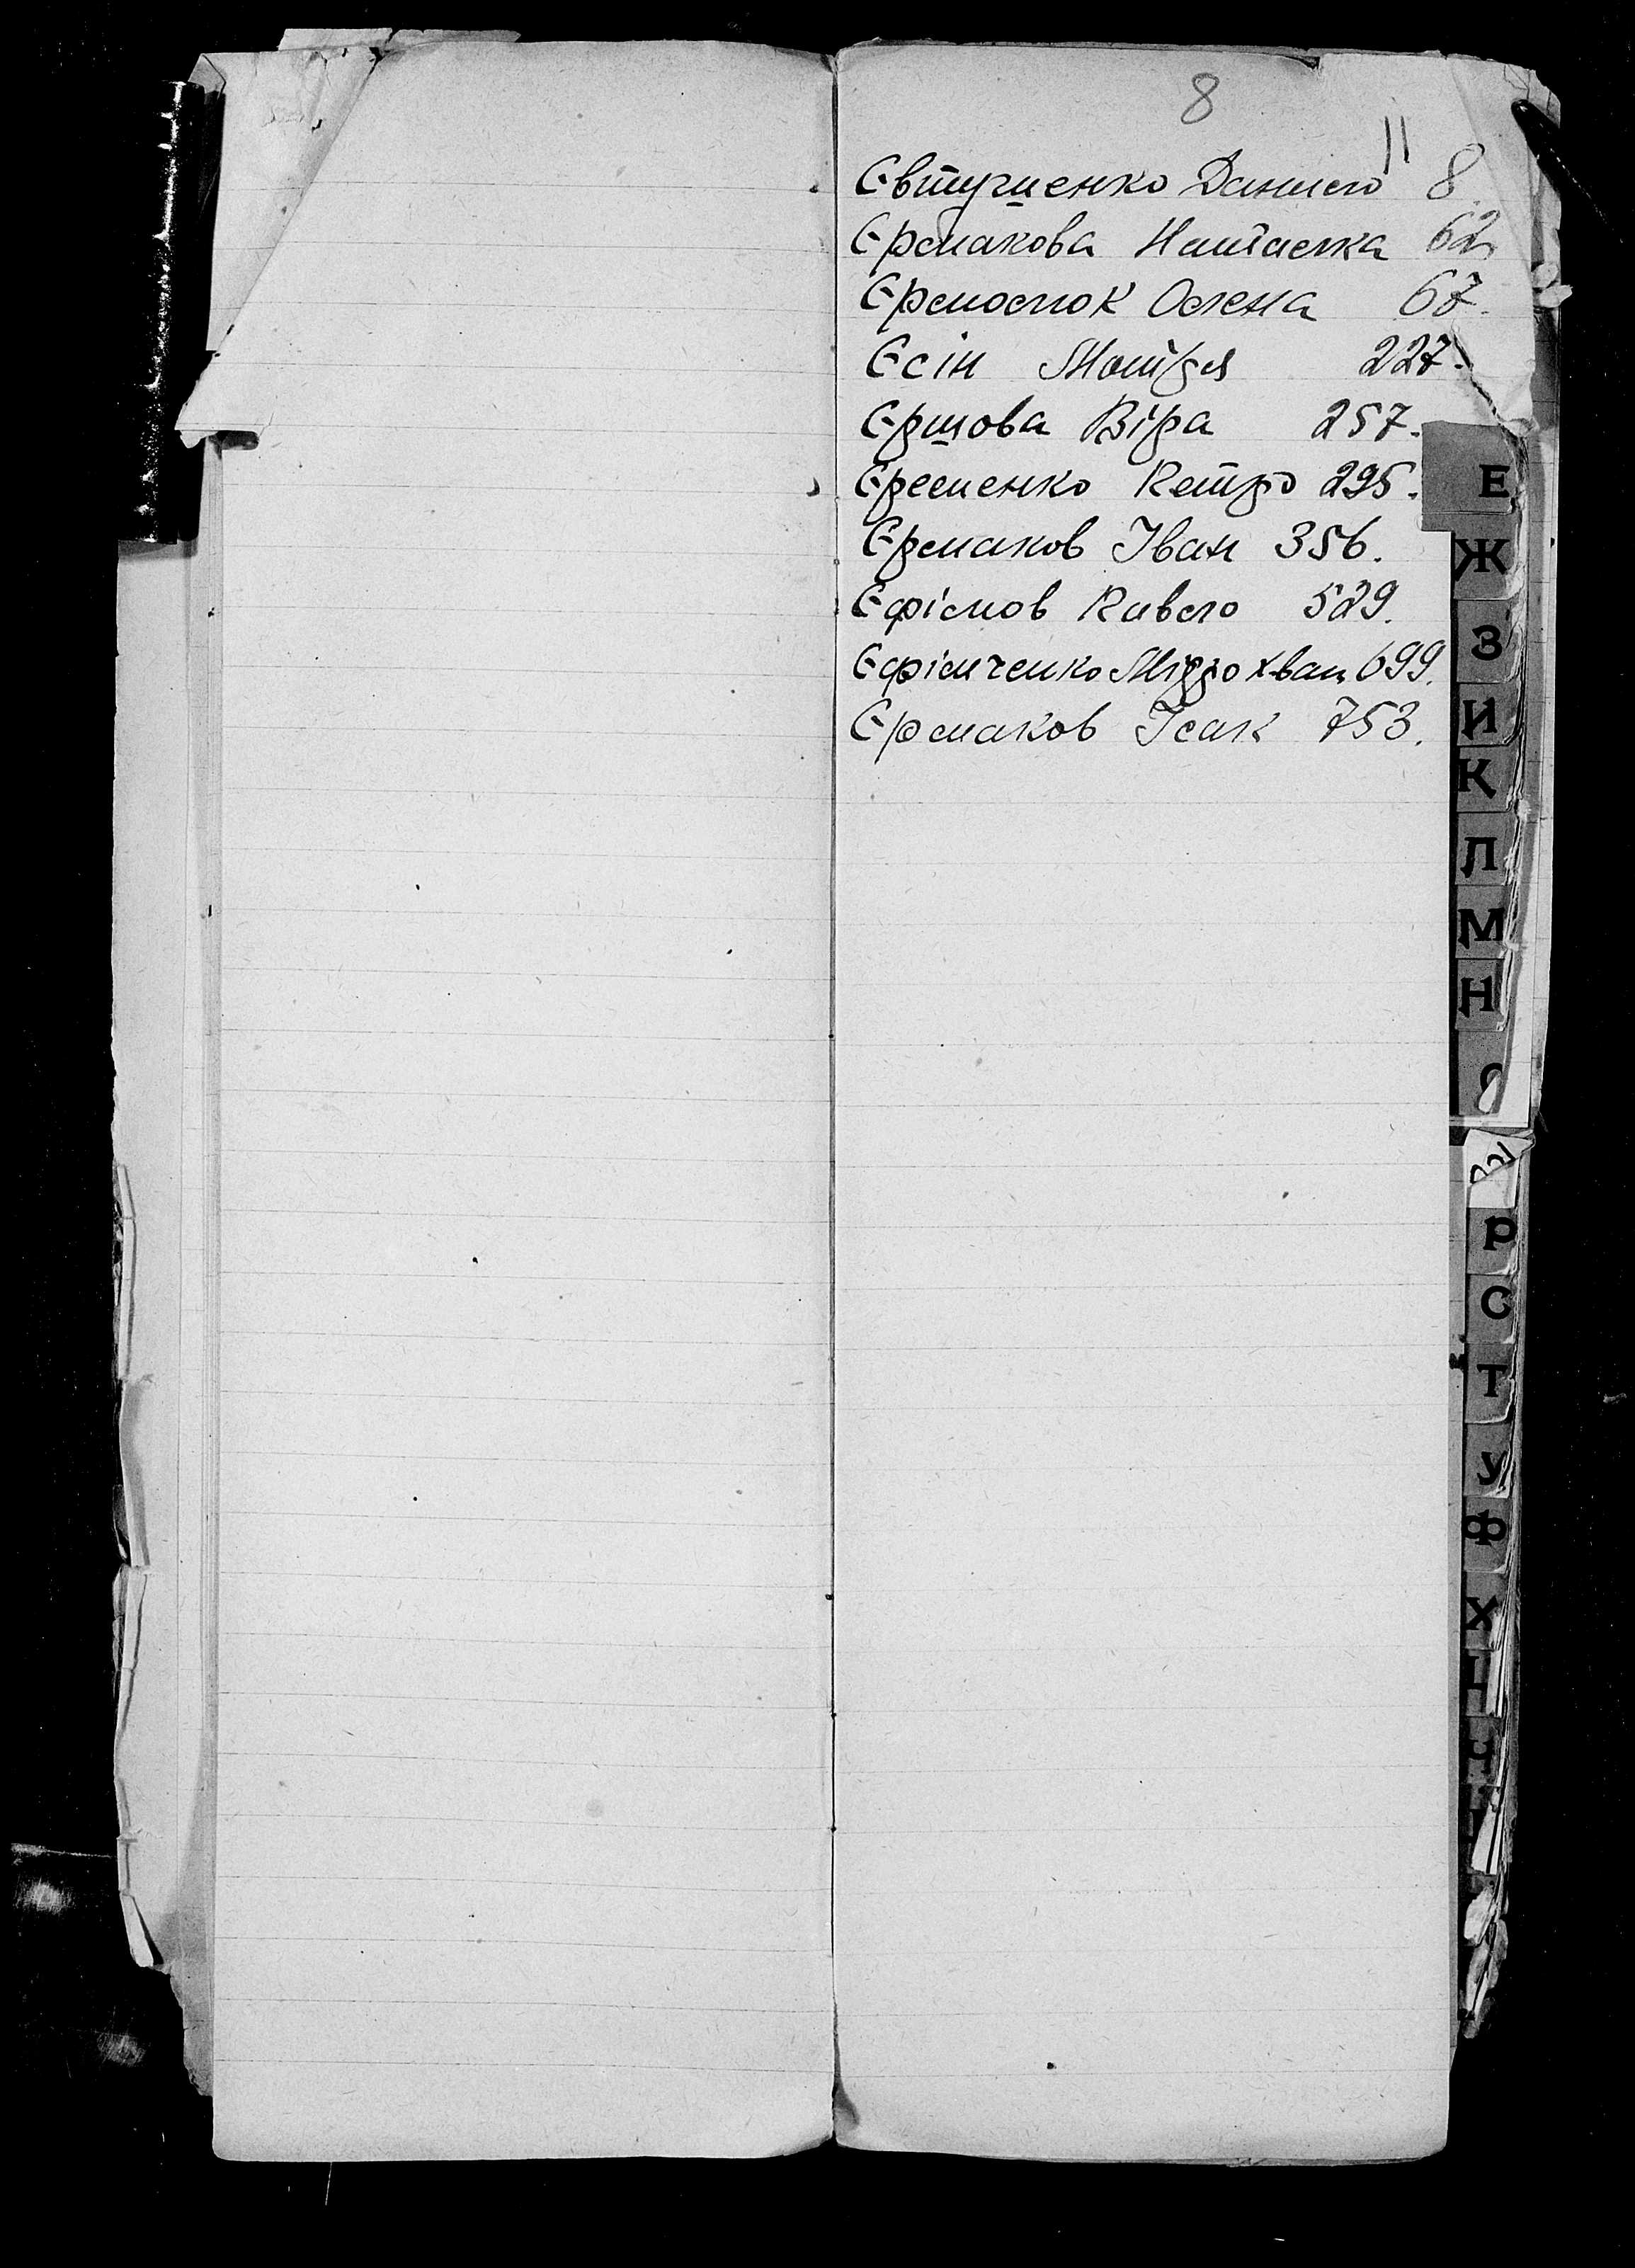 8
11
Євтушенко Данило 8
Єрмакова Наталка 62
Єрмолюк Олена 67.
Єсін Мотря 227.
Єршова Віра 257.
Єременко Петро 295.
Єрмаков Іван 356.
Єфімов Павло 529.
Єфімченко Мітрохван 699.
Єрмаков Ісак 753.
Е
Ж
З
И
К
Л
М
Н
Р
С
Т
У
Ф
Х
Ч